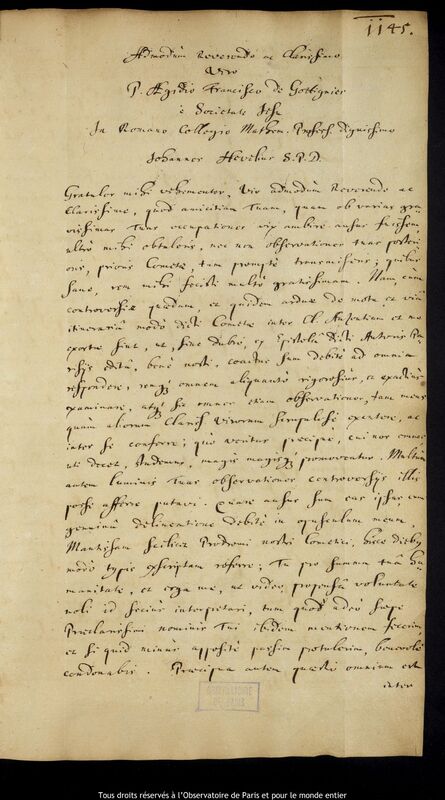 1145.
Admodùm Reverendo ac Clarissimo
Viro
P. Ægidio Francisco de Gottignies
è Societate Jesu
In Romano Collegio Mathem. Profess. dignissimo
Johannes Hevelius S.P.D.
Gratulor mihi vehementer, Vir admodùm Reverende ac
Clarissime, quod amicitiam Tuam, quam ob varias gra-
vissimas Tuas occupationes vix ambire ausus fuissem,
ultrò mihi obtuleris, nec non observationes tuas posteri-
oris, prioris Cometæ, tam promptè transmiseris; quibus
sane, rem mihi fecisti multò gratissimam. Nam, cùm
controversiæ quædam, et quidem arduæ de motu et viâ
itineraria modò dicti Cometæ inter Cl. Auzoutium et me
exortæ sint, ut, sine dubio, ex Epistolâ Dicti Autoris Pa-
risijs editâ, benè nosti, coactus sum debitè ad omnia
respondere, remq; omnem aliquantò rigorosiùs, et exactiùs
examinare, atq; sic omnes etiam observationes, tam meas
quàm aliorum Clariss. Virorum scrupulosè expendere, ac
inter se conferre; quò veritas præcipuè, cui nos omnes
ut decet, studemus, magis magisq; promoveatur. Multùm
autem luminis Tuas observationes controversijs illis
posse afferre putavi. Quare ausus sum eas ipsas cum
genuinâ delineatione debitè in opusculum meum,
Mantissam scilicet Prodromi nostri Cometici, hisce diebus
modò typis exscriptam referre; Tu pro summa tuâ hu-
manitate, et erga me, ut video, propensâ voluntate
noli id secius interpretari, tum quòd adeò sæpe
Præclarissimi nominis Tui ibidem mentionem fecerim,
et si quid minùs appositè passim protulerim, benevolè
condonabis. Præcipua autem quæstio omnium est
inter
OBSERVATOIRE
DE PARIS
Tous droits réservés à l'Observatoire de Paris et pour le monde entier